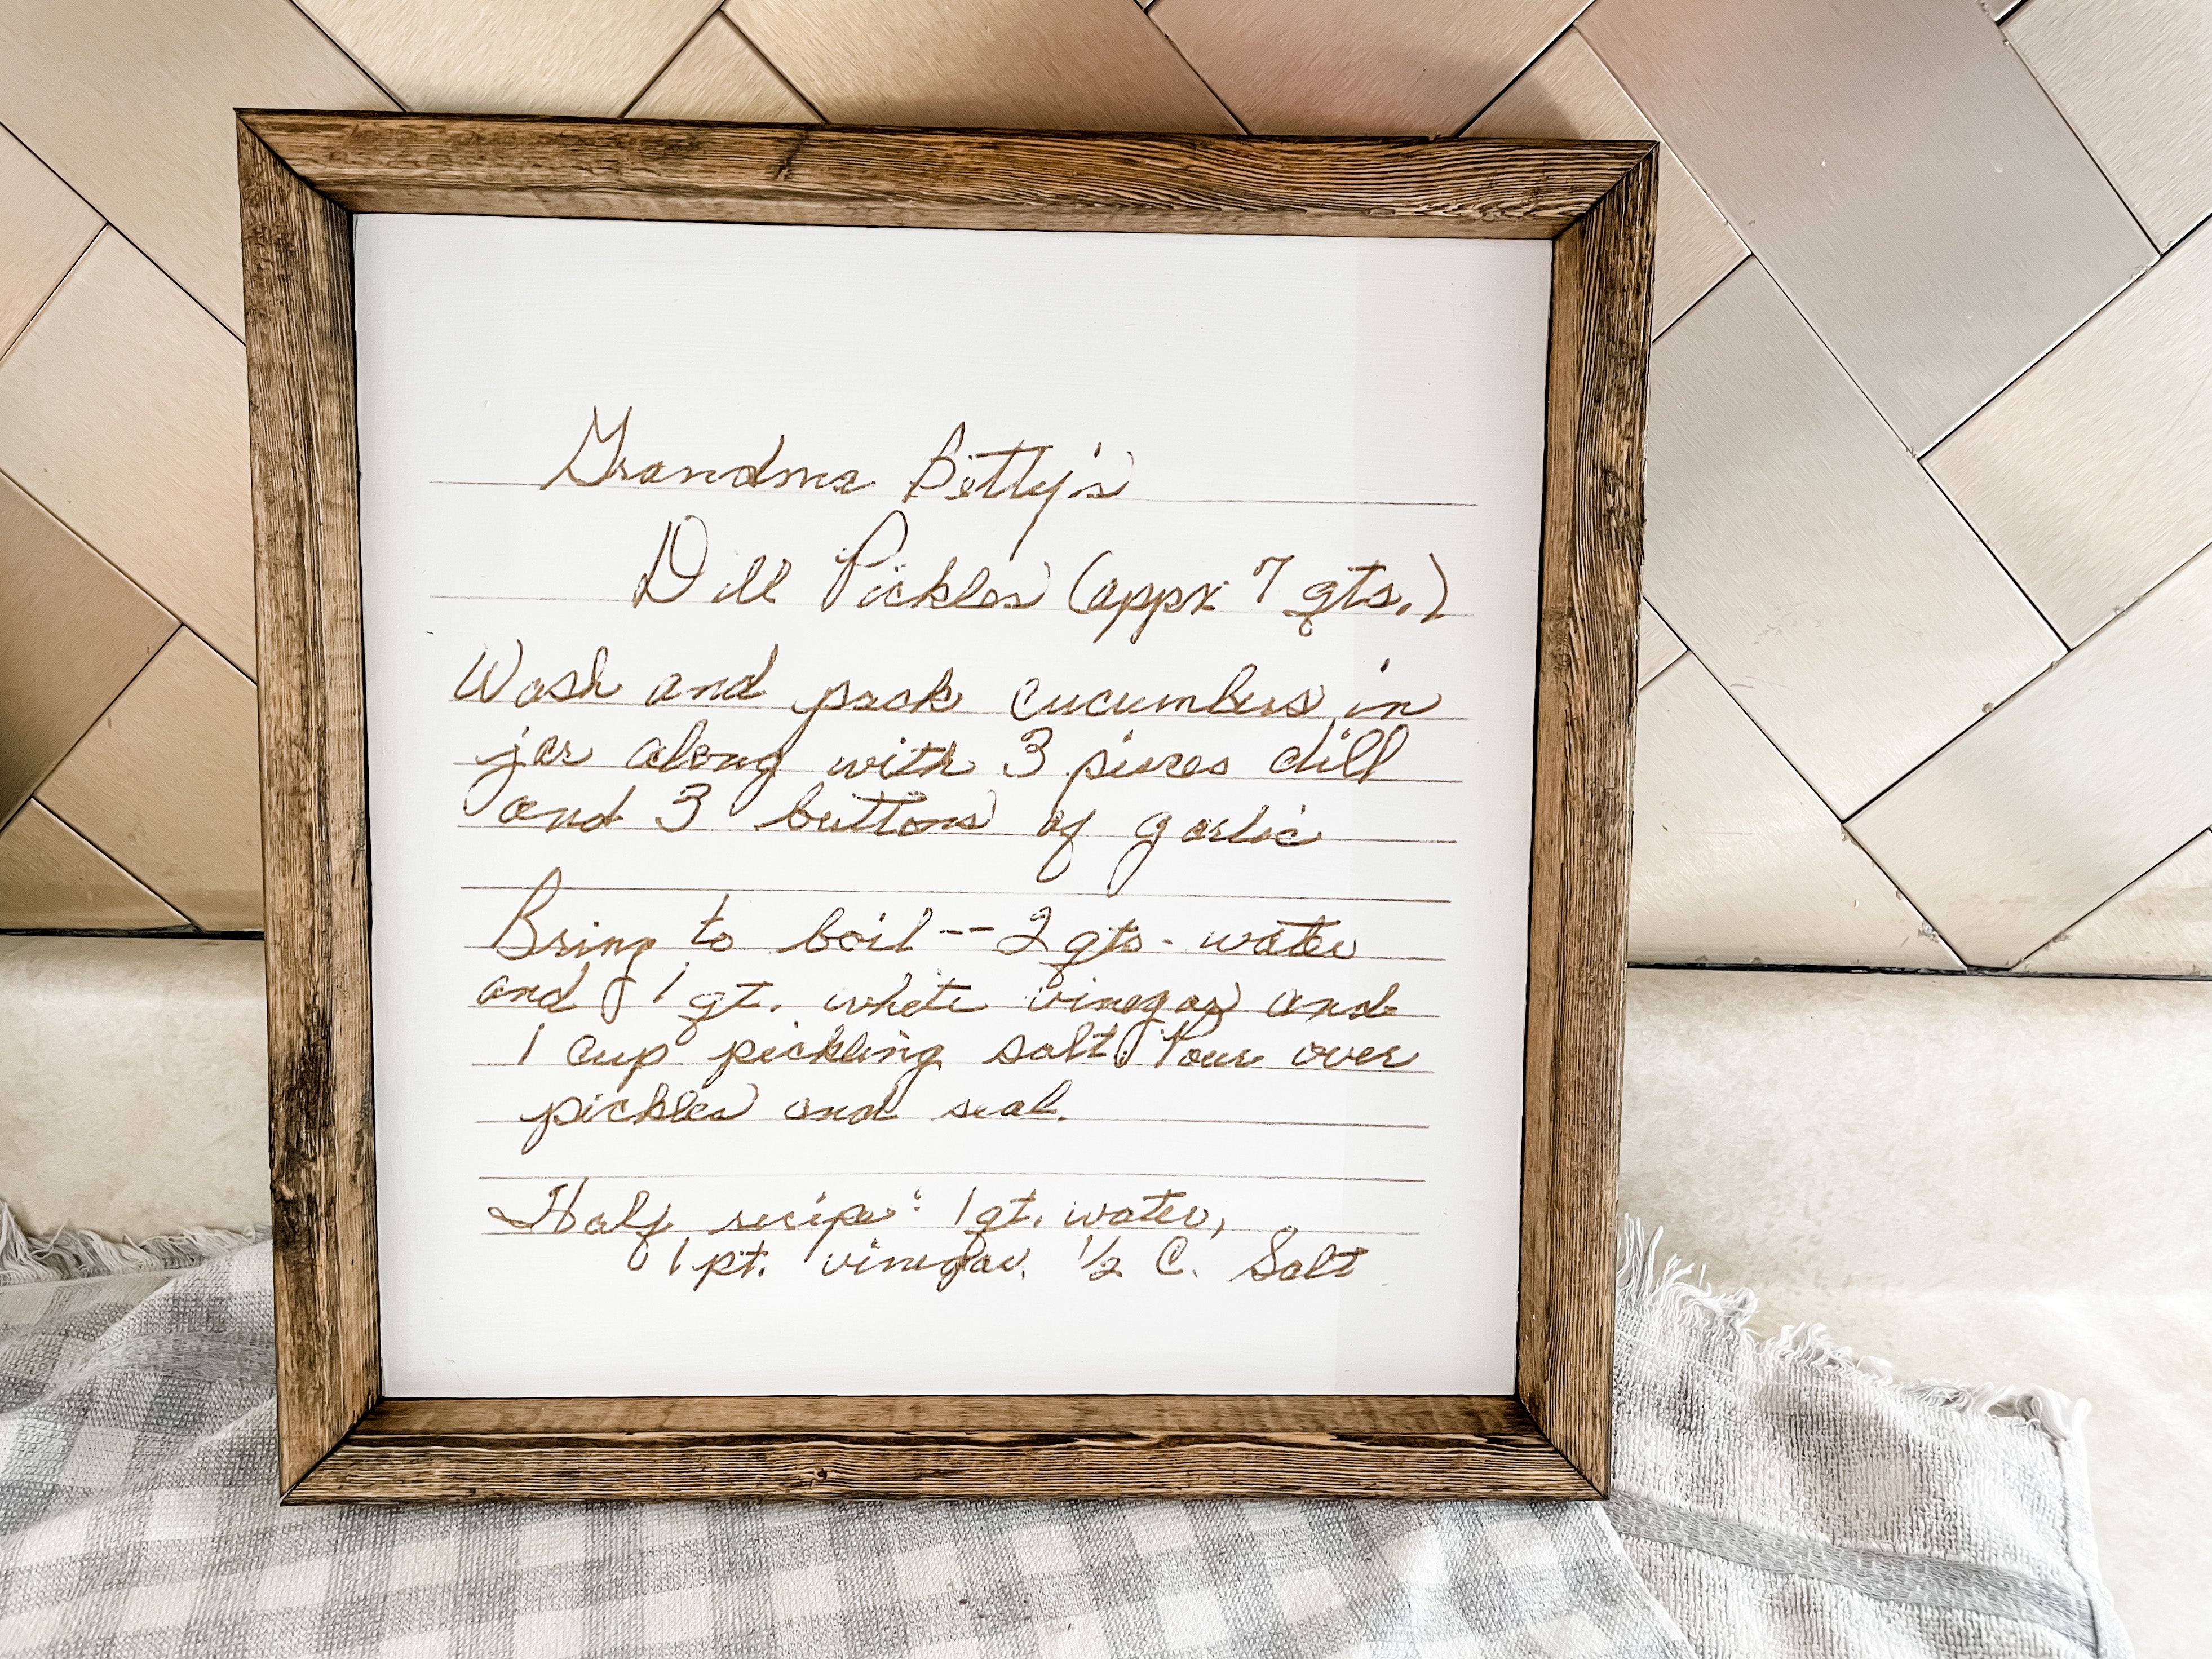 Grandma Betty's
Dill Pickles (appx 7 qts.)
Wash and pack cucumbers in
jar along with 3 pieces dill
and 3 buttons of garlic
Bring to boil -- 2 qts. water
and 1 qt. white vinegar and
1 cup pickling salt. Pour over
pickles and seal.
Half recipe: 1 qt. water,
1 pt. vinegar. 1/2 C. Salt